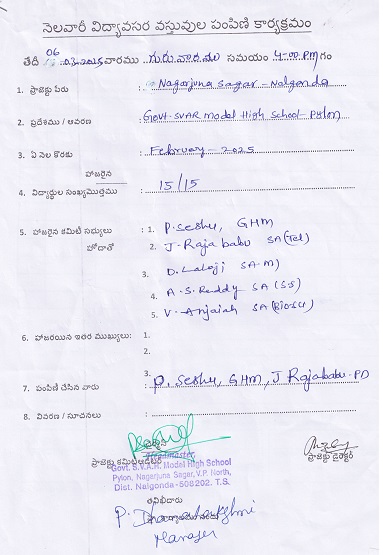 నెలవారీ విద్యావసర వస్తువుల పంపిణి కార్యక్రమం
తేదీ 06-03-2025 వారము గురువారము సమయం 4-00 PM గం
1. ప్రాజెక్టు పేరు : Nagarjuna sagar - Nalgonda
2. ప్రదేశము / ఆవరణ : Govt-SVAR Model High School-Pylon
3. ఏ నెల కొరకు : February-2025
హాజరైన
4. విద్యార్థుల సంఖ్య/మొత్తము : 15/15
5. హాజరైన కమిటి సభ్యులు : 1. P. Seshu, GHM
హోదాతో 2. J-Raja babu SA (Tel)
3. D. Laloji SA-M)
4. A.S. Reddy SA (SS)
5. V. Anjaiah SA (Biosci)
6. హాజరయిన ఇతర ముఖ్యులు: 1.
2.
3.
7. పంపిణి చేసిన వారు : P. Seshu, GHM, J Rajababu-PD
8. వివరణ / సూచనలు :
ప్రాజెక్టు కమిటి
ప్రాజెక్టు డైరెక్టర్
Headmaster
Govt. S.V.A.R. Model High School
Pylon, Nagarjuna Sagar, V.P. North,
Dist. Nalgonda-508202. T.S.
తనిఖీదారు
Manager